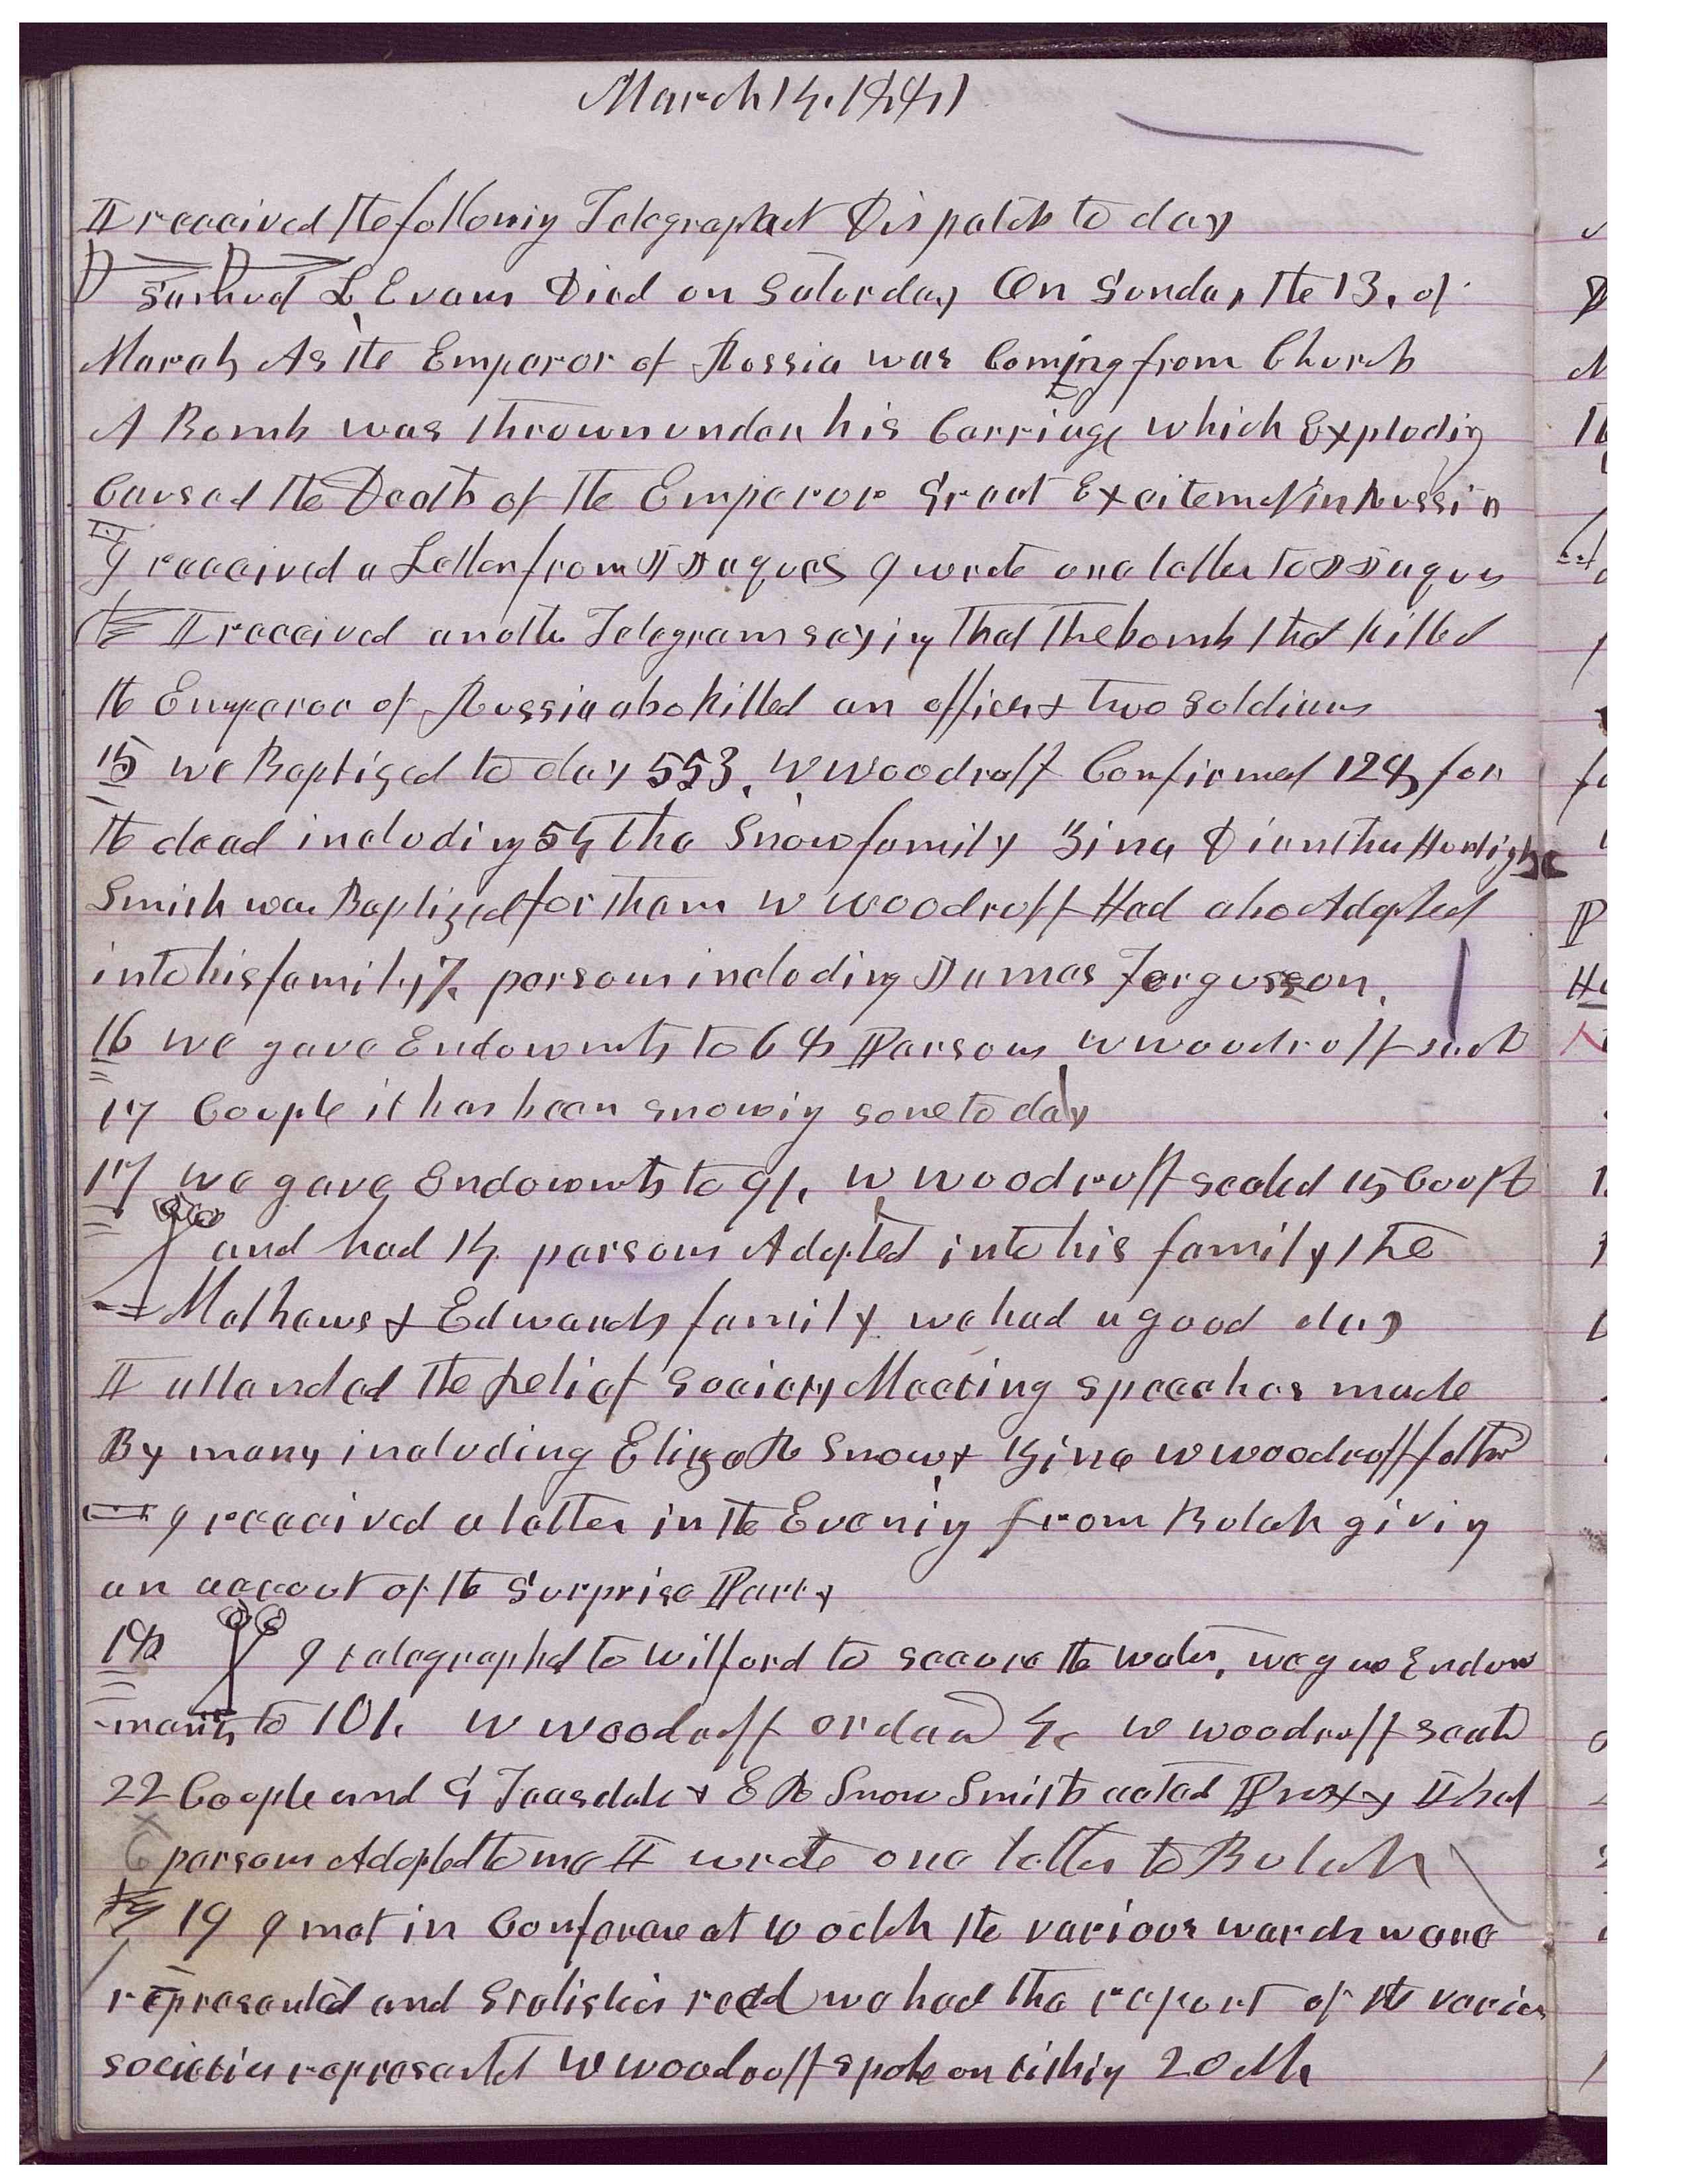 March 14. 1881
I received the following Telegraphet Dispatch to day
Samuel L Evans Died on Saturday On Sunday the 13, of
March As the Emperor of Russia was Coming from Church
A Bomb was thrown under his Carriage which Exploding
Caused the Death of the Emperor Great Excitemet in Russia
I received a Letter from I wrote one letter to
I received another Telegram saying that the bomb that killed
the Emperor of Russia also killed an officer & two soldiers
15 we Baptized to day 553. W Woodruff Confirmed 128 for
the dead including 54 the Snow family Zina Diantha Huntington
Smith was Baptized for them W Woodruff Had also Adopted
into his family 7. persons including James Fergusson.
16 we gave Endowmts to 68 Persons W Woodruff seald
17 Couple it has been snowing some to day
17 we gave Endowmts to 91. W Woodruff sealed 15 Coupls
and had 14 persons Adopted into his family the
Mathews & Edwards family we had a good day
I attended the Relief Society Meeting speeches made
By many including Eliza R Snow & Zina W Woodruff follwd
I received a letter in the Evening from Bulah giving
an accout of the Surprise Party
18 I telegraphed to Wilford to secure the water, we gave Endow
-ments to 101. W Woodruff ordaind 4. W Woodruff seald
22 Couple and G Teasdale & E R Snow Smith acted Proxy I had
6 persons Adopted to me I wrote one letter to Bulah
19 I met in Conferance at 10 oclk the various wards ware
represented and Statistics read we had the report of the various
societies represented W Woodruff spoke on tithing 20 M